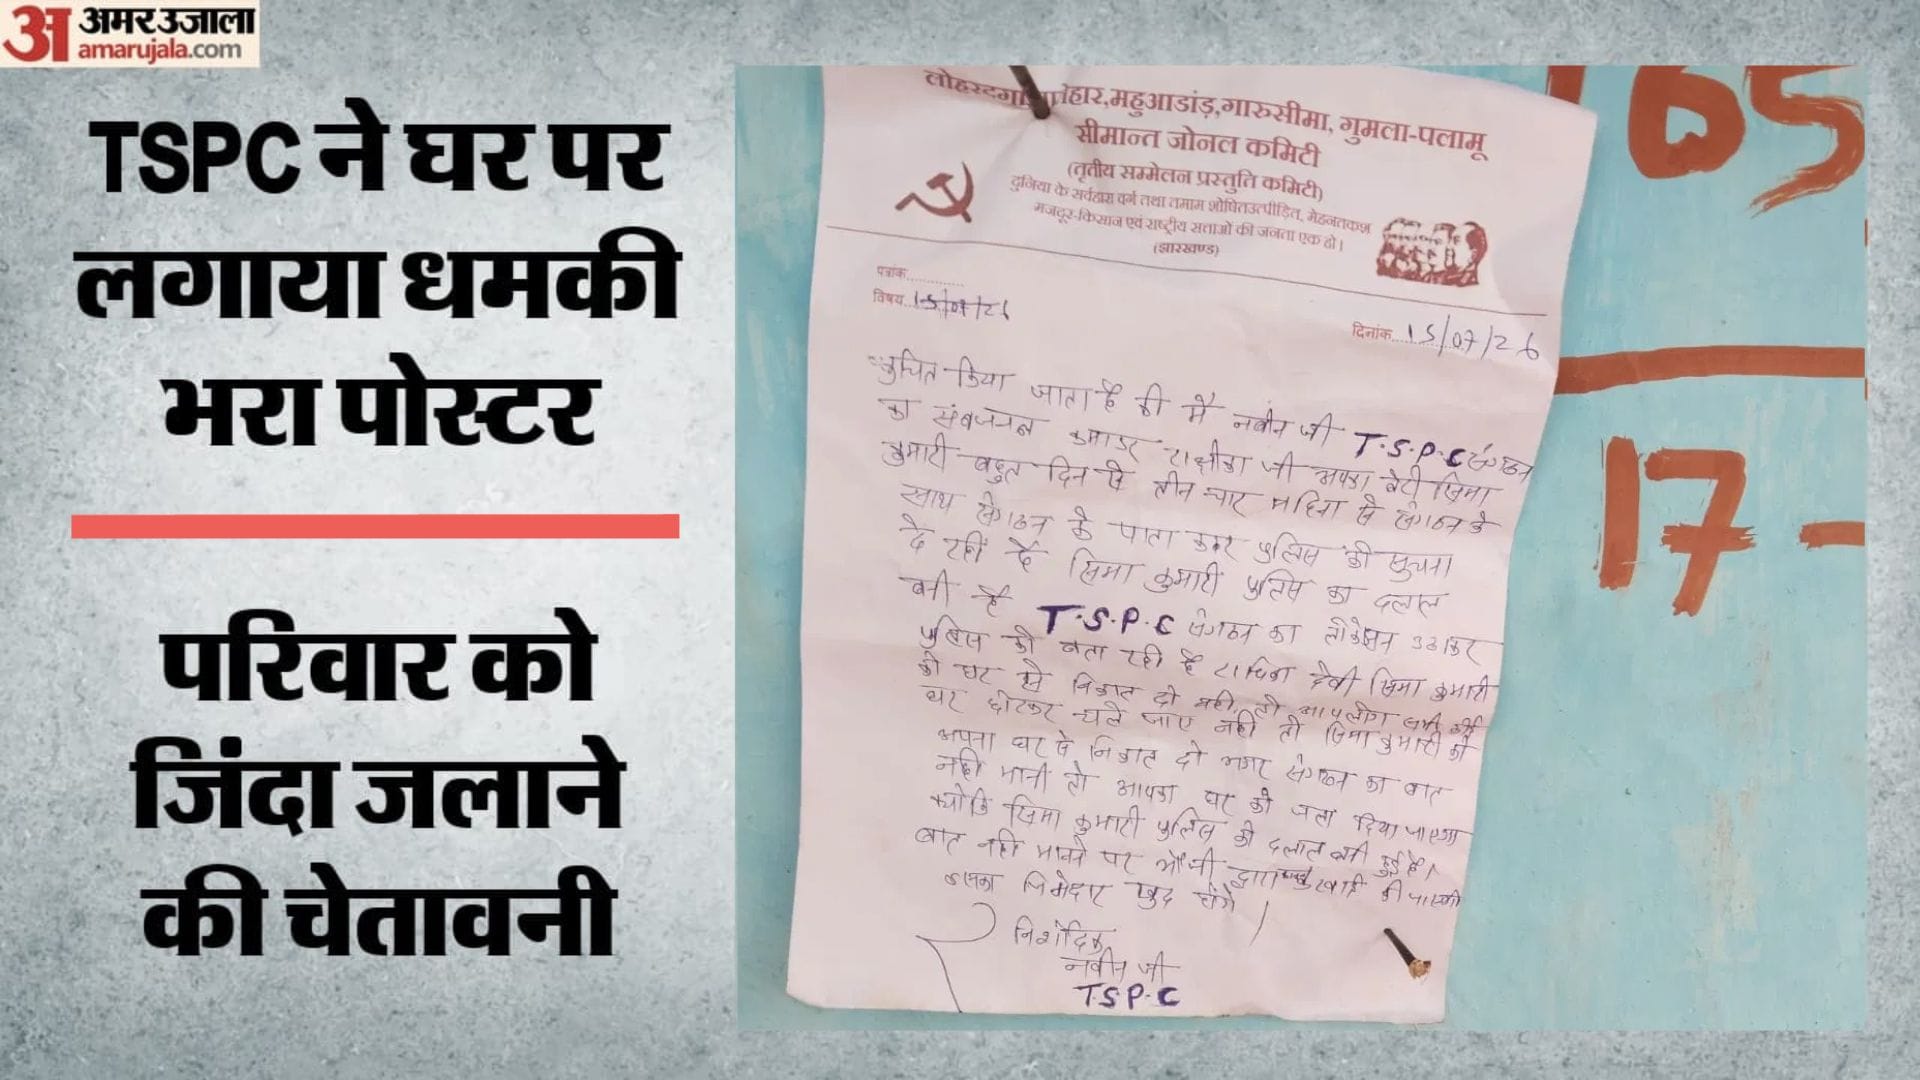 अ अमर उजाला
amarujala.com
TSPC ने घर पर
लगाया धमकी
भरा पोस्टर
परिवार को
जिंदा जलाने
की चेतावनी
लोहरदगा हार,महुआडांड़,गारुसीमा, गुमला-पलामू
सीमान्त जोनल कमिटी
(तृतीय सम्मेलन प्रस्तुति कमिटी)
दुनिया के सर्वहारा वर्ग तथा तमाम शोषितउत्पीड़ित, मेहनतकश
मजदूर-किसान एवं राष्ट्रीय सत्ताओं की जनता एक हो।
(झारखण्ड)
पत्रांक
विषय 15/07/26
दिनांक 15/07/26
सुचित किया जाता है की मैं नवीन जी T.S.P.C संगठन
का कमाडर जी आपका बेटी सिमा
कुमारी बहुत दिन से तीन चार महिना से संगठन के
साथ संगठन के पाता कर पुलिस को सुचना
दे रही है सिमा कुमारी पुलिस का दलाल
बनी है T.S.P.C संगठन का लोकेशन उठाकर
पुलिस को बता रही है राधिका देवी सिमा कुमारी
को घर से निकाल दो नही तो आपलोग
घर छोरकर चले जाए नही तो सिमा कुमारी को
अपना घर से निकाल दो अगर संगठन का बात
नही मानी तो आपका घर को जला दिया जाएगा
क्योकि सिमा कुमारी पुलिस को दलाल बनी हुई है।
बात नही मानने पर द्वारा की जाएगी
इसका जिमेदार खुद होंगे।
नवीन जी
T.S.P.C
165
17-